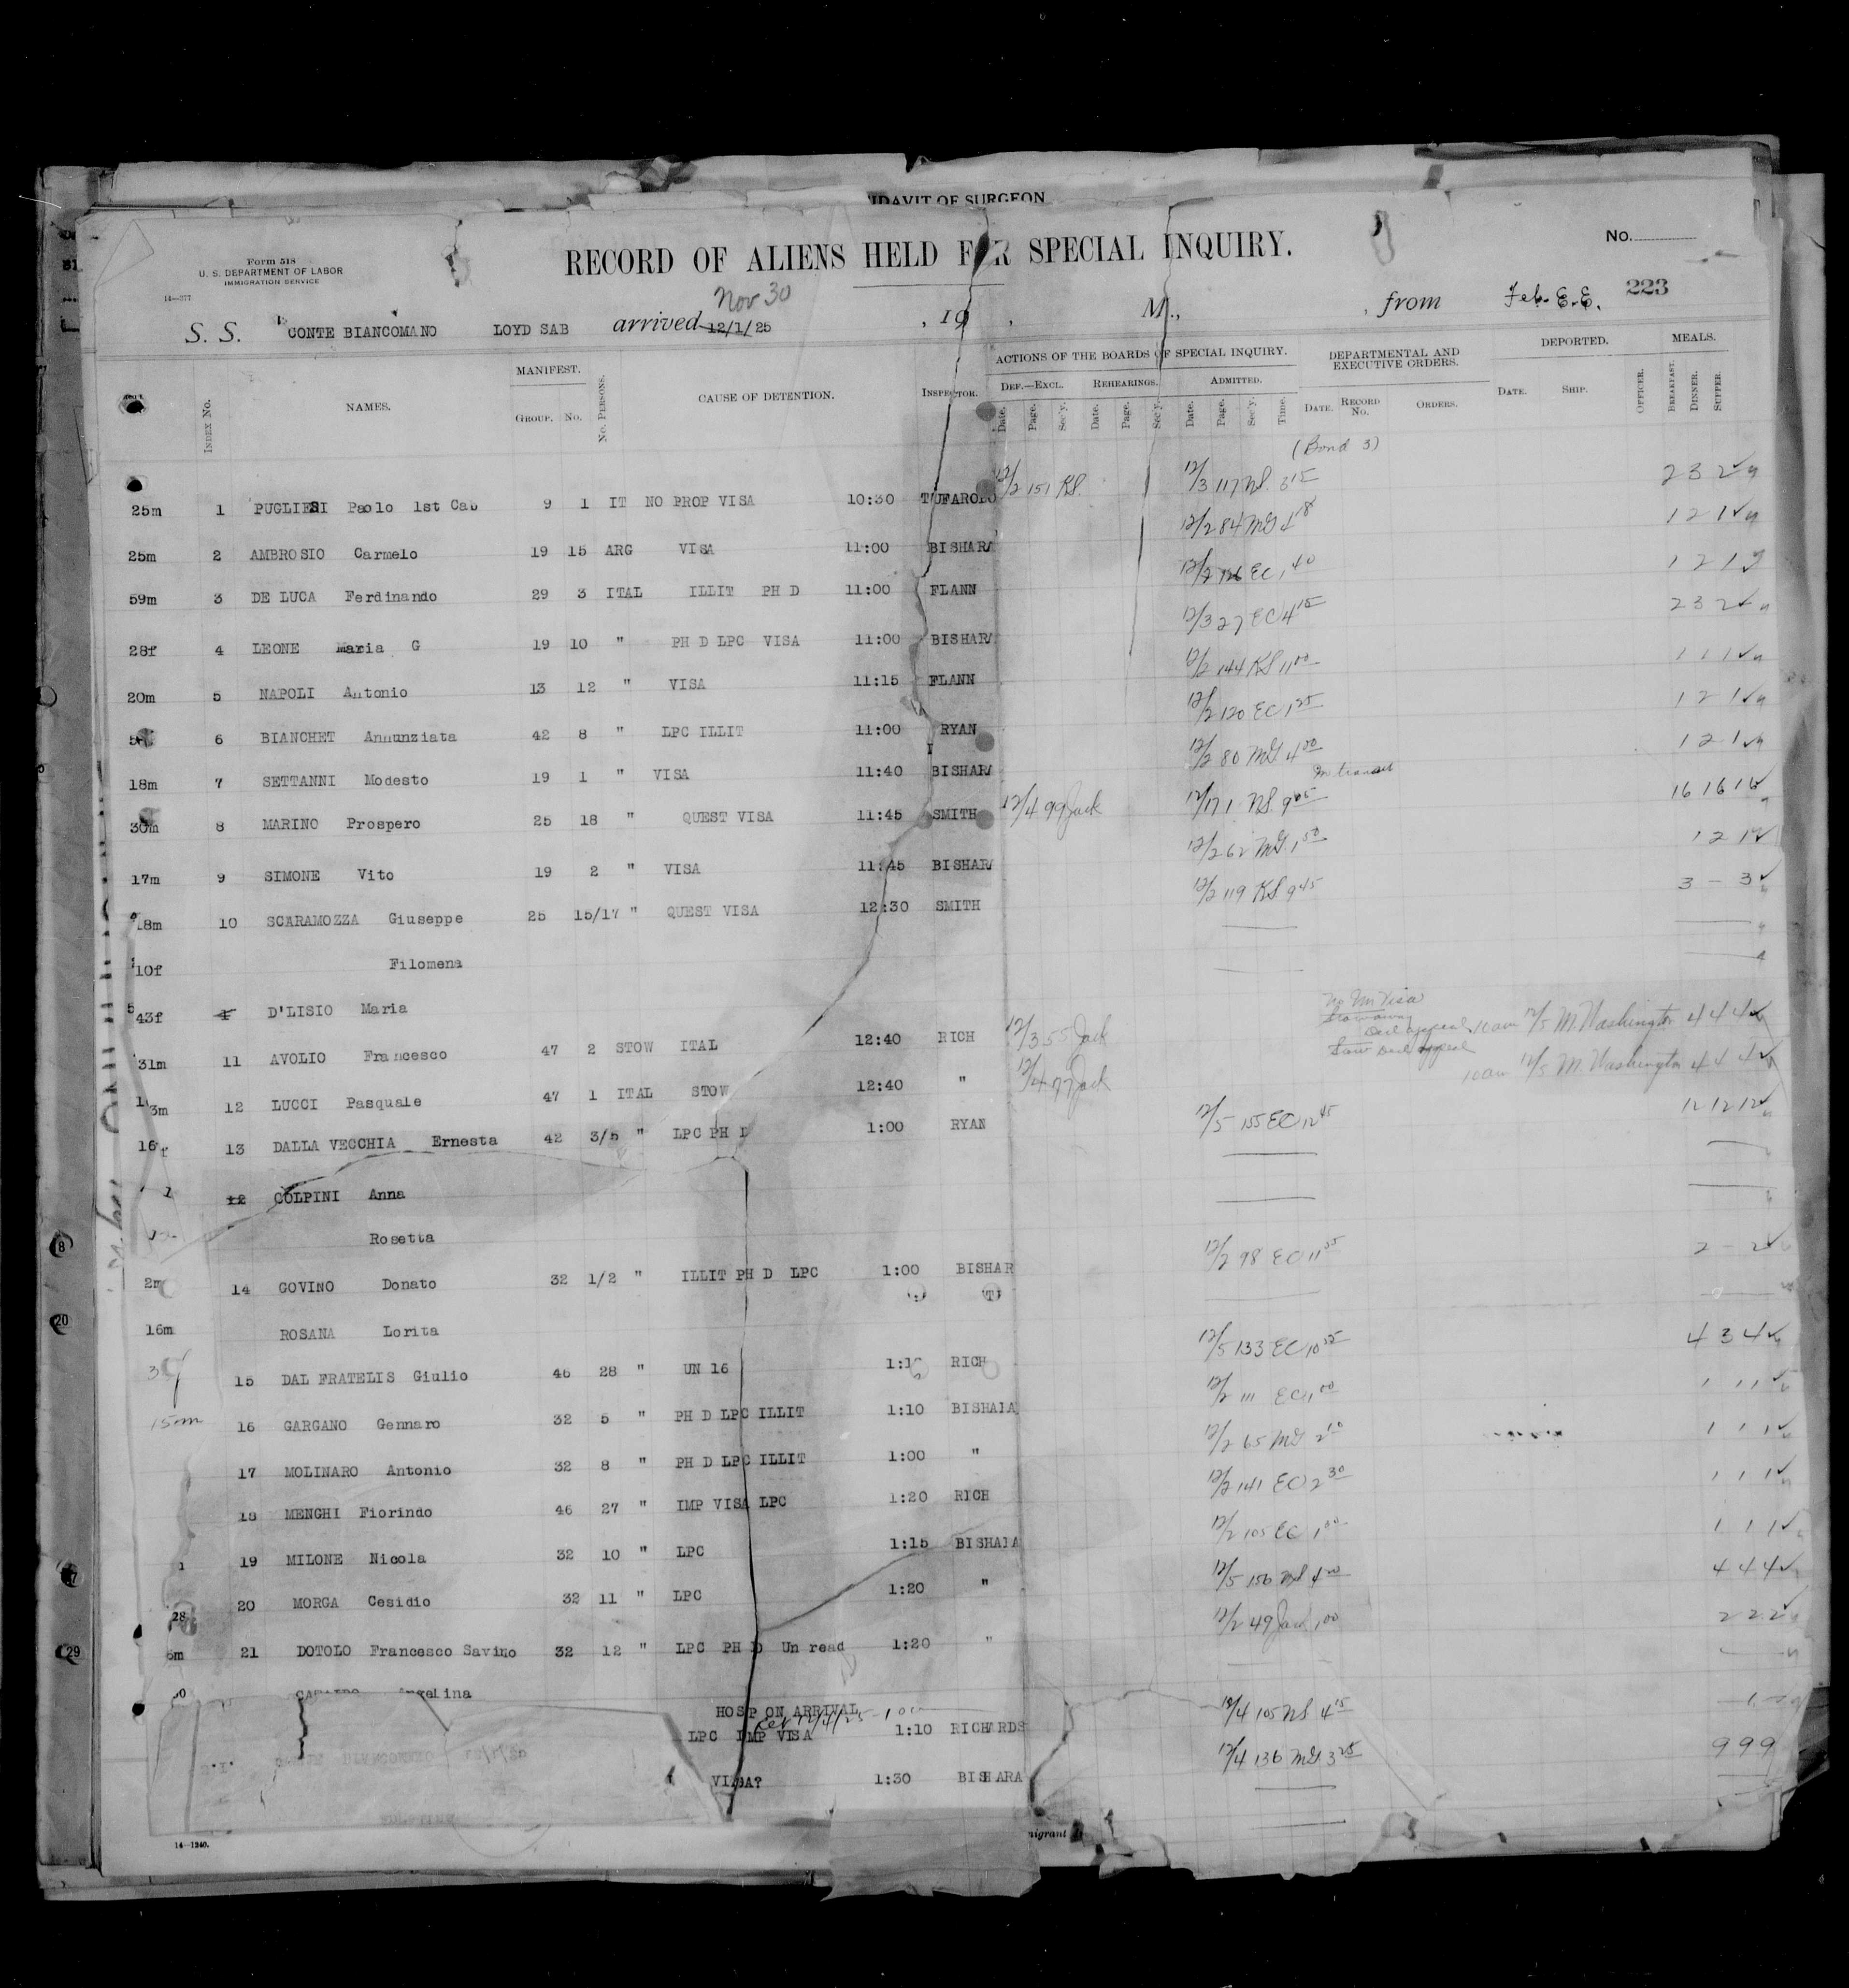 IDAVIT OF SURGEON
Form 518
U. S. DEPARTMENT OF LABOR
IMMIGRATION SERVICE
14—377
RECORD OF ALIENS HELD FOR SPECIAL INQUIRY.
No.
223
Nov 30
S. S. CONTE BIANCOMANO LOYD SAB arrived 12/1/25 , 19 , M., , from Feb. E.E.
INDEX No. NAMES. MANIFEST. GROUP. No. No. PERSONS. CAUSE OF DETENTION. INSPECTOR. ACTIONS OF THE BOARDS OF SPECIAL INQUIRY. DEPARTMENTAL AND EXECUTIVE ORDERS. DEPORTED. MEALS.
DEF.—EXCL. REHEARINGS. ADMITTED.
Date. Page. Sec'y. Date. Page. Sec'y. Date. Page. Sec'y. Time. DATE. RECORD No. ORDERS. DATE. SHIP. OFFICER. BREAKFAST. DINNER. SUPPER.
(Bond 3)
25m 1 PUGLIESI Paolo 1st Cab 9 1 IT NO PROP VISA 10:30 TUFAROLO 12/2 151 KS. 12/3 117 NS. 3 15 2 3 2
25m 2 AMBROSIO Carmelo 19 15 ARG VISA 11:00 BISHARA 12/2 84 MG 4 18 1 2 1
59m 3 DE LUCA Ferdinando 29 3 ITAL ILLIT PH D 11:00 FLANN 12/2 126 EC 1 40 1 2 1
28f 4 LEONE Maria G 19 10 " PH D LPC VISA 11:00 BISHARA 12/3 27 EC 4 15 2 3 2
20m 5 NAPOLI Antonio 13 12 " VISA 11:15 FLANN 12/2 144 KS 11 00 1 1 1
6 BIANCHET Annunziata 42 8 " LPC ILLIT 11:00 RYAN 12/2 120 EC 1 25 1 2 1
18m 7 SETTANNI Modesto 19 1 " VISA 11:40 BISHARA 12/2 80 MG 4 00 1 2 1
In transit
30m 8 MARINO Prospero 25 18 " QUEST VISA 11:45 SMITH 12/4 99 Jack 12/17 1 NS. 9 05 16 16 16
17m 9 SIMONE Vito 19 2 " VISA 11:45 BISHARA 12/2 62 MG. 1 50 1 2 1
18m 10 SCARAMOZZA Giuseppe 25 15/17 " QUEST VISA 12:30 SMITH 12/2 119 KS. 9 45 3 – 3
10f Filomena
43f D'LISIO Maria
No Im Visa
31m 11 AVOLIO Francesco 47 2 STOW ITAL 12:40 RICH 12/3 55 Jack Stowaway appeal 10am 12/5 M. Washington 4 4 4
3m 12 LUCCI Pasquale 47 1 ITAL STOW 12:40 " 12/4 77 Jack appeal 10am 12/5 M. Washington 4 4 4
16f 13 DALLA VECCHIA Ernesta 42 3/5 " LPC PH D 1:00 RYAN 12/5 155 EC 12 45 12 12 12
12 COLPINI Anna
Rosetta
2m 14 GOVINO Donato 32 1/2 " ILLIT PH D LPC 1:00 BISHAR 12/2 98 EC 11 35 2 – 2
16m ROSANA Lorita
15 DAL FRATELIS Giulio 46 28 " UN 16 RICH 12/5 133 EC 10 35 4 3 4
15m 16 GARGANO Gennaro 32 5 " PH D LPC ILLIT 1:10 BISHARA 12/2 111 EC 1 00 1 1 1
17 MOLINARO Antonio 32 8 " PH D LPC ILLIT 1:00 " 12/2 65 MG 2 10 1 1 1
18 MENGHI Fiorindo 46 27 " IMP VISA LPC 1:20 RICH 12/2 141 EC 2 30 1 1 1
19 MILONE Nicola 32 10 " LPC 1:15 BISHARA 12/2 105 EC 1 30 1 1 1
28 20 MORGA Cesidio 32 11 " LPC 1:20 " 12/5 156 NS 4 00 4 4 4
21 DOTOLO Francesco Savino 32 12 " LPC PH D Un read 1:20 " 12/2 49 Jack 1 00 2 2 2
Angelina
HOSP ON ARRIVAL
LPC IMP VISA 1:10 RICHARDS 12/4 105 NS 4 15 – 1 –
VISA? 1:30 BISHARA 12/4 136 MG 3 25 9 9 9
14—1240.